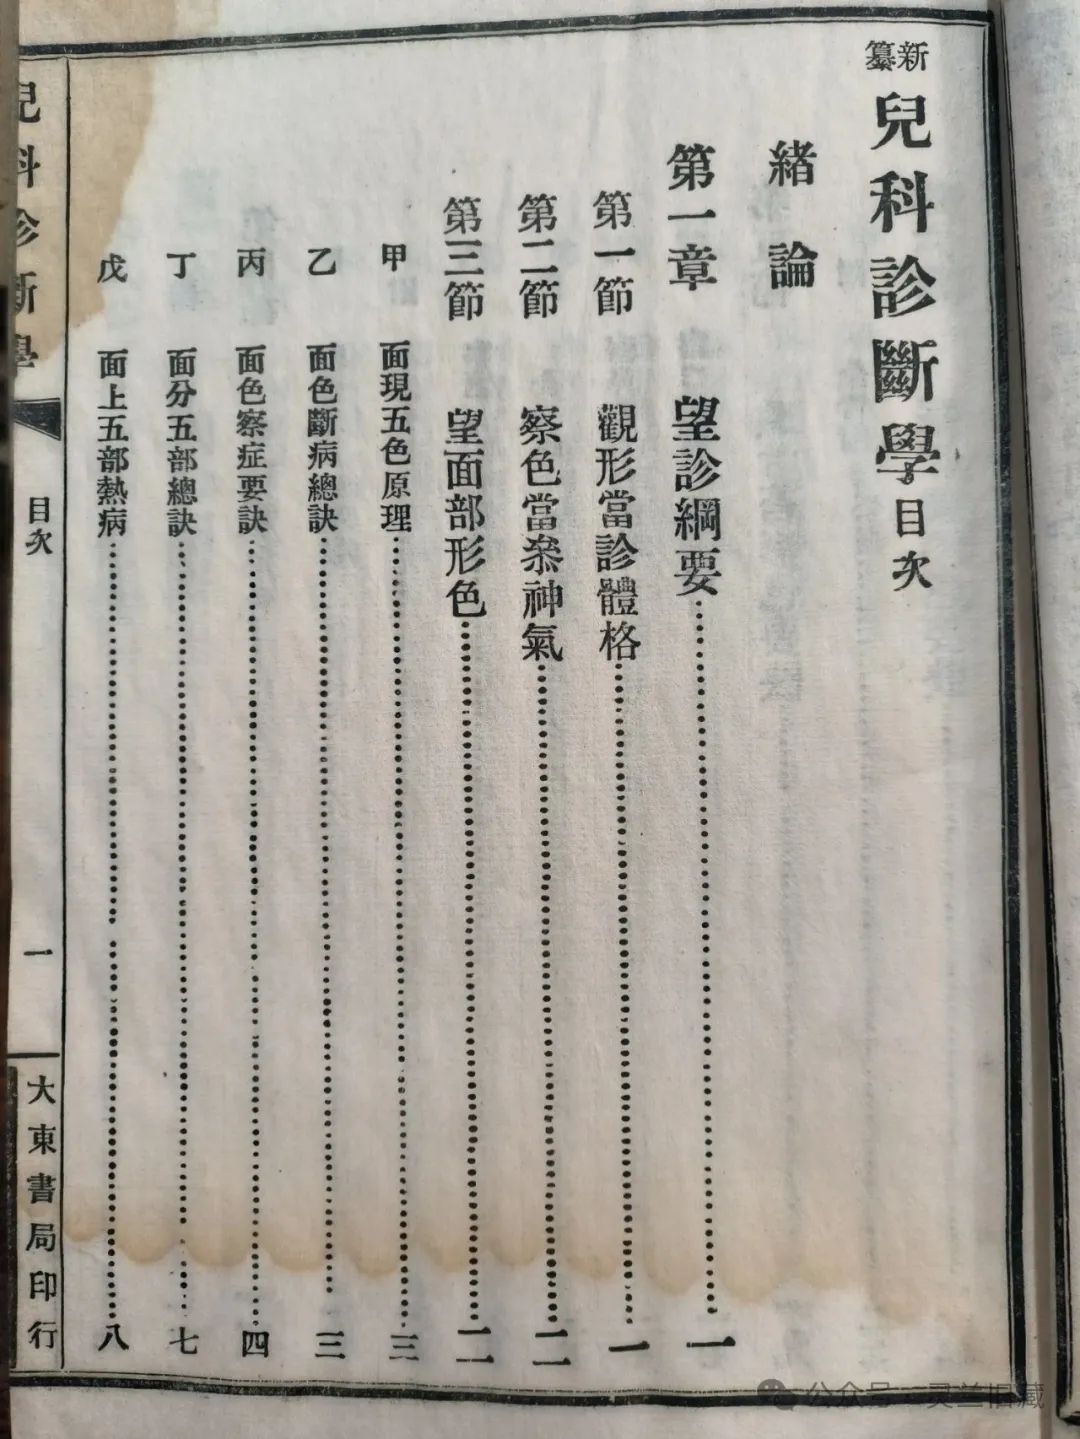 新纂
兒科診斷學目次
緒論
第一章 望診綱要 一
第一節 觀形當診體格 一
第二節 察色當叅神氣 二
第三節 望面部形色 二
甲 面現五色原理 三
乙 面色斷病總訣 三
丙 面色察症要訣 四
丁 面分五部總訣 七
戊 面上五部熱病 八
兒科診斷學 目次 一 大東書局印行
公众号·灵兰旧藏